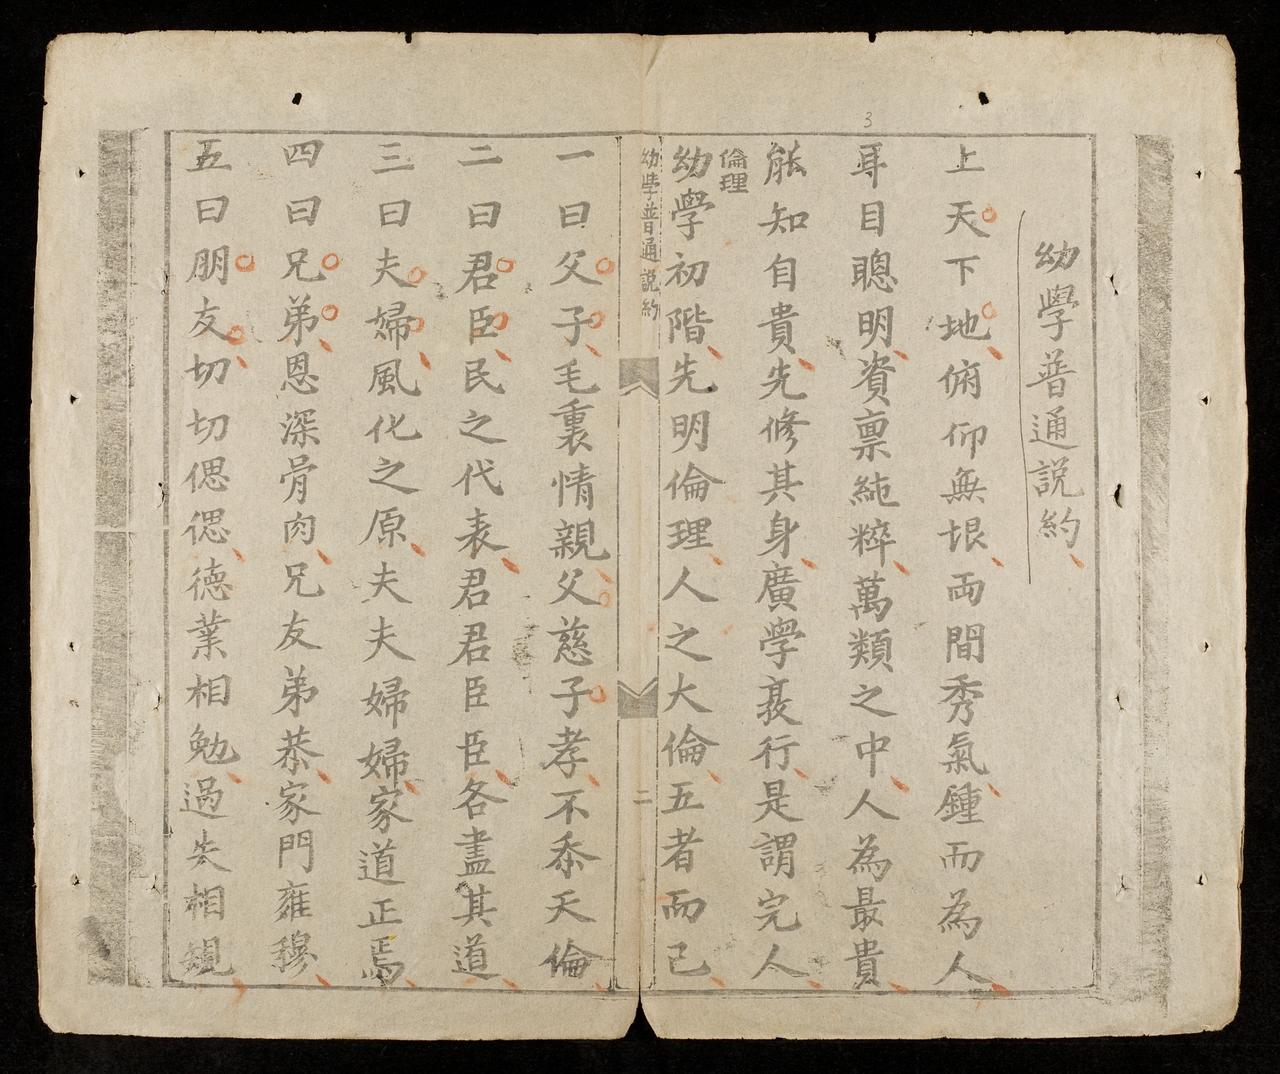 3
幼學普通説約
上天下地俯仰無垠両間秀氣鍾而為人
耳目聰明資禀純粹萬類之中人為最貴
能知自貴先修其身廣學裒行是謂完人
倫理
幼學初階先明倫理人之大倫五者而已
幼學普通説約
二
一曰父子毛裏情親父慈子孝不忝天倫
二曰君臣民之代表君君臣臣各盡其道
三曰夫婦風化之原夫夫婦婦家道正焉
四曰兄弟恩深骨肉兄友弟恭家門雍穆
五曰朋友切切偲偲德業相勉過失相規